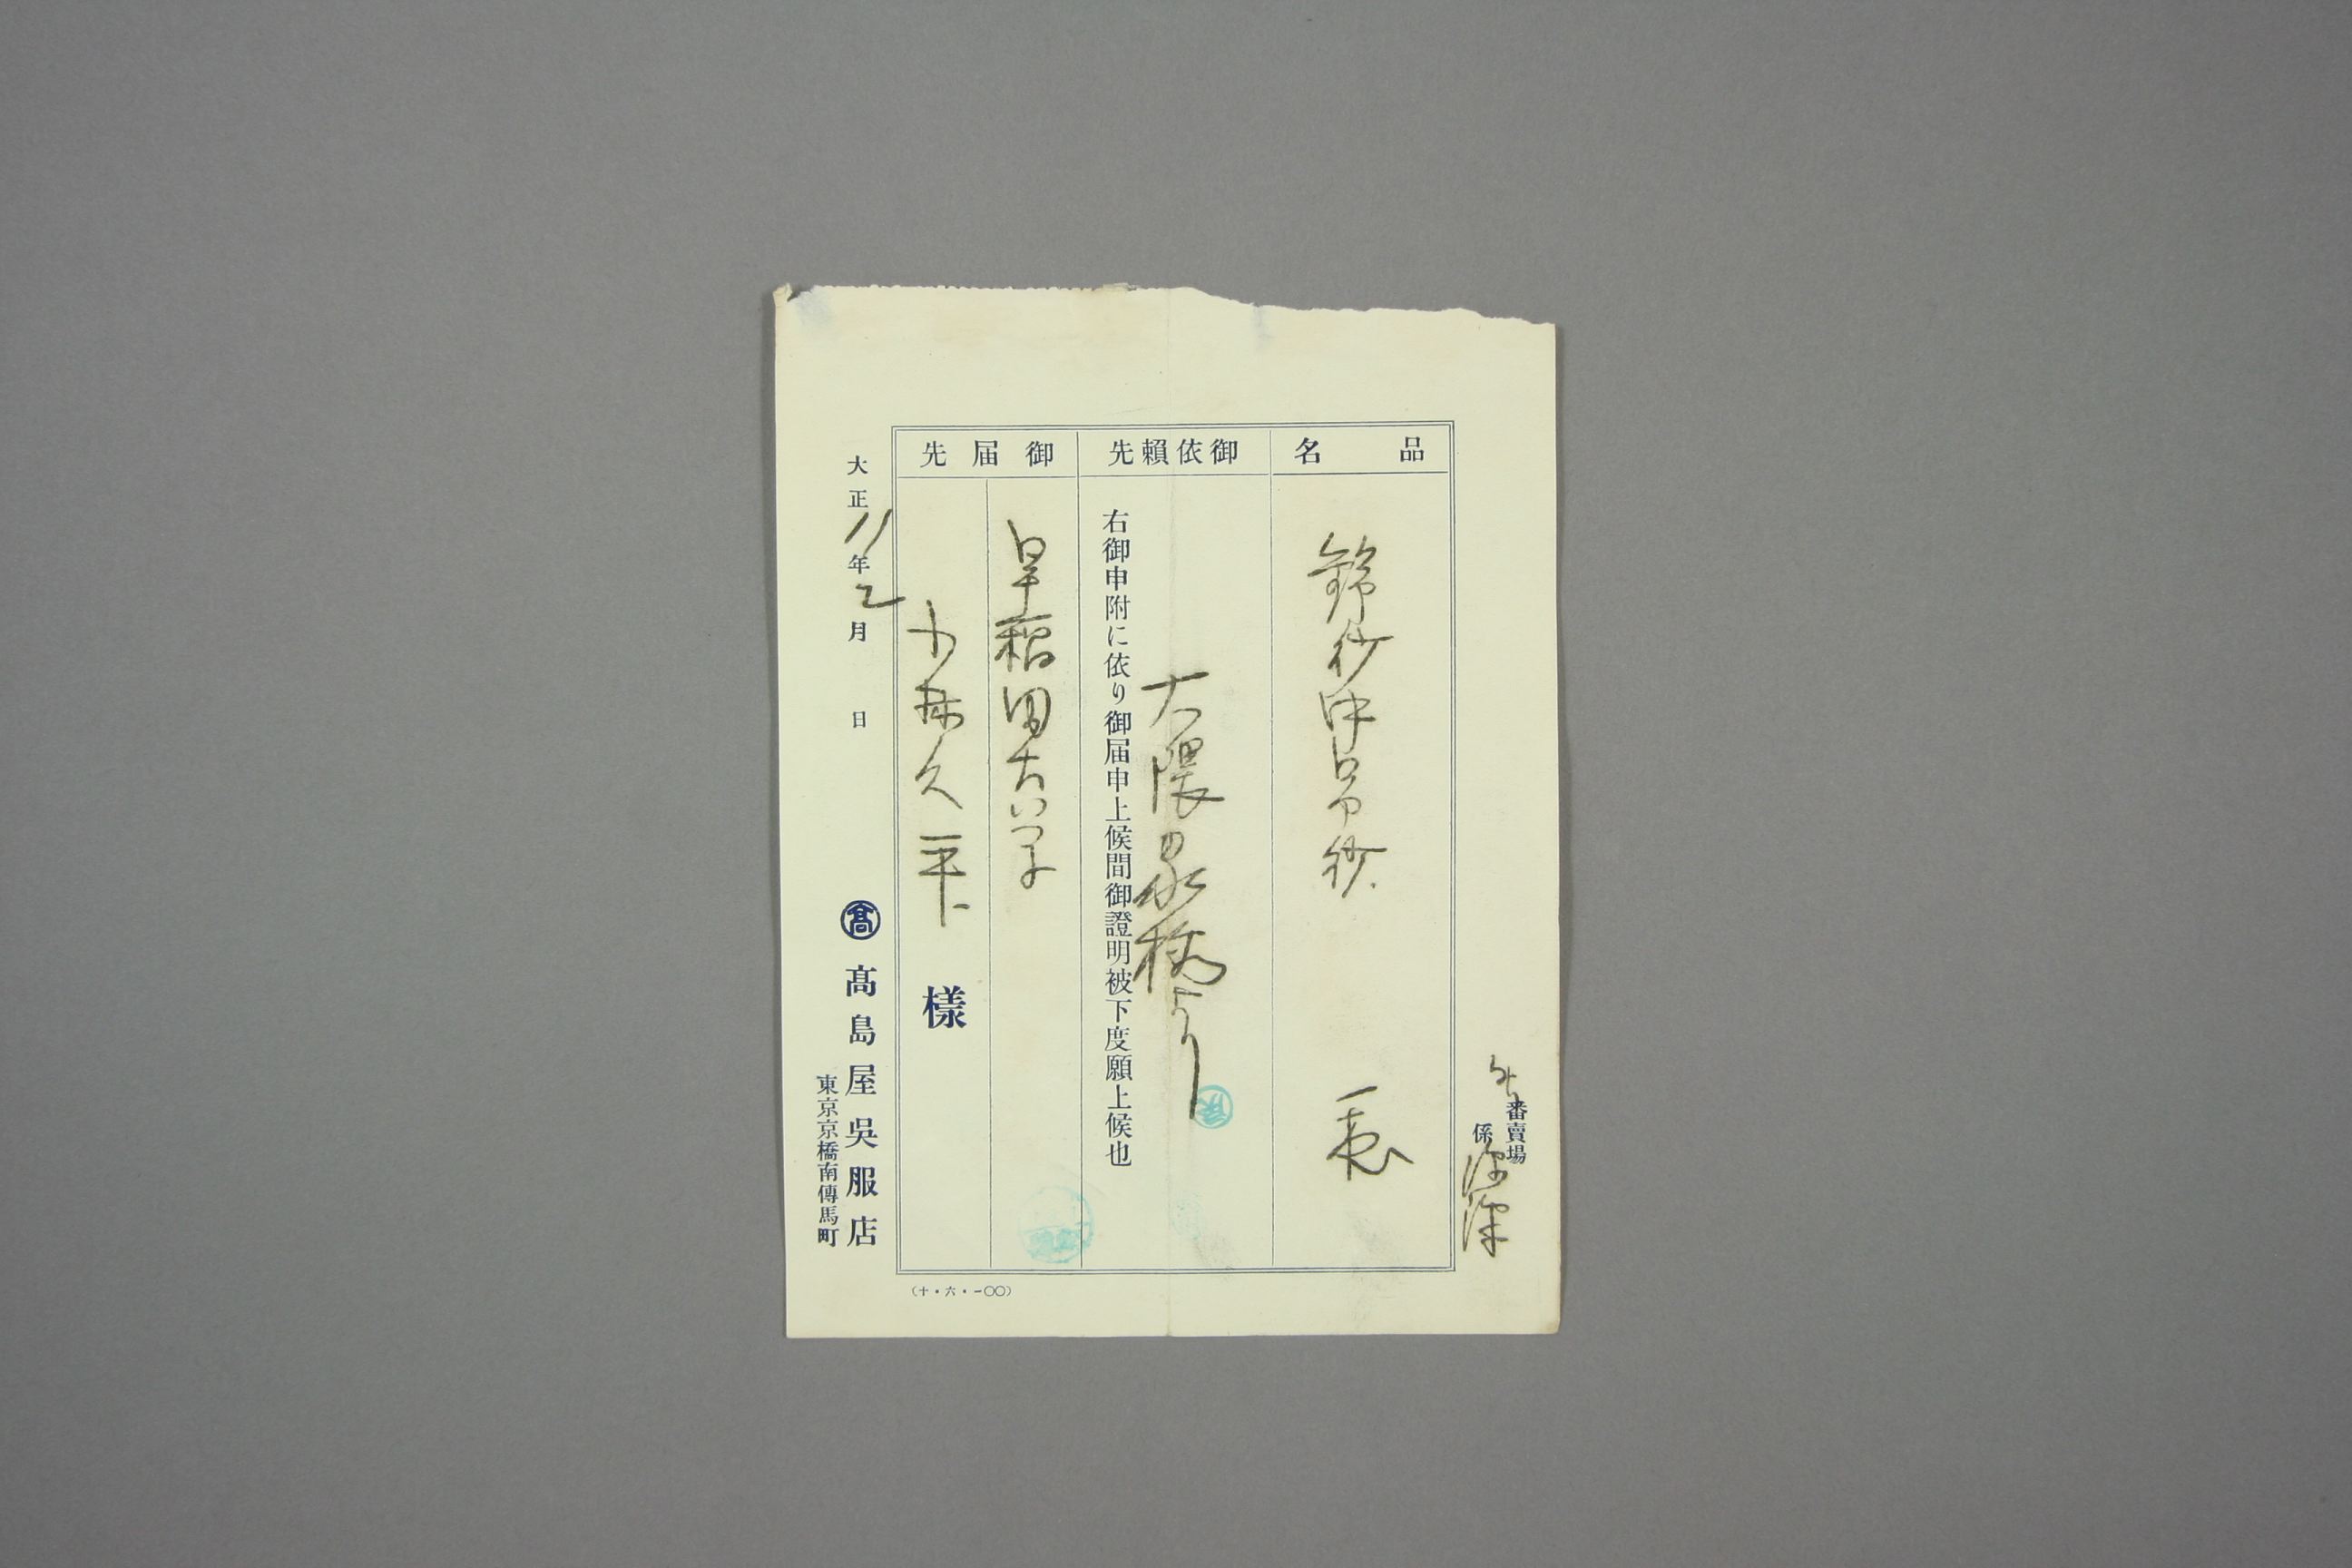 番賣場
係
品名
錦紗中呂紗
御依賴先
大隈家様より
右御申附に依り御届申上候間御證明被下度願上候也
御届先
早稲田大学
久平
様
大正11年2月 日
髙 髙島屋吳服店
東京京橋南傳馬町
(十・六・一〇〇)